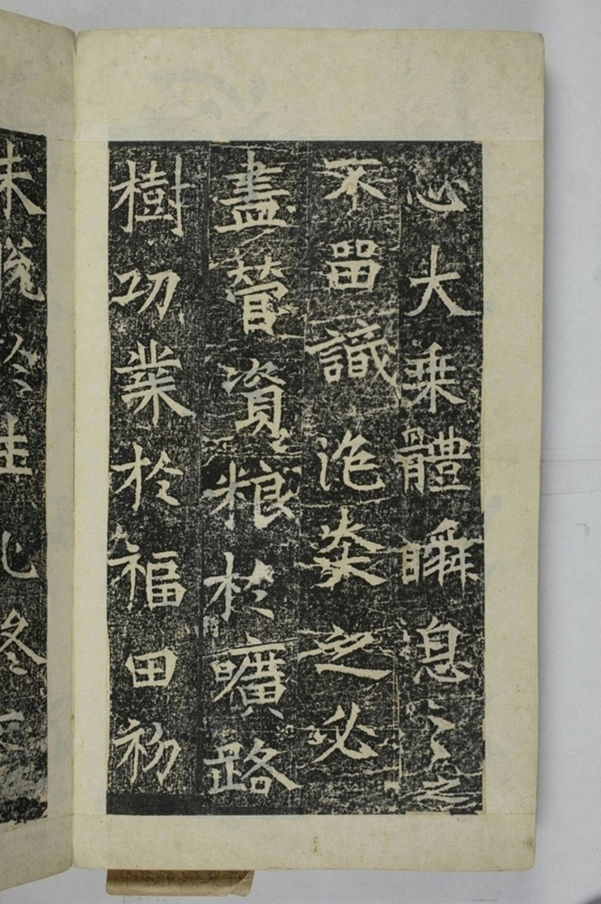 心大乗體瞬息之
不畱識泡焱之必
盡營資粮於曠路
樹功業於福田初